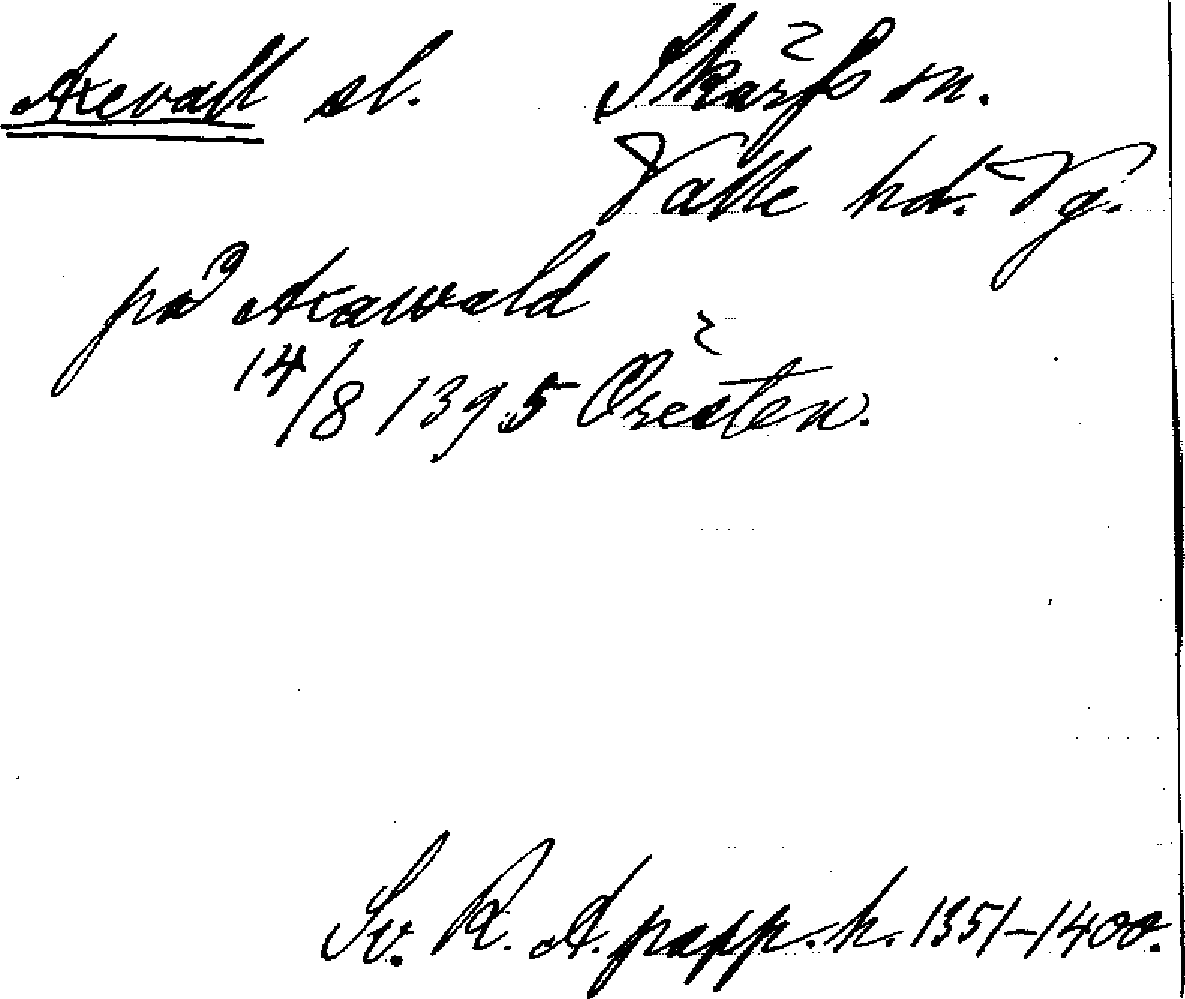 Axevall sl. Skärfs sn.
Valle hd. Vg.
på Axawald
14/8 1395 Öresten.
Sv. R. A. papp. h. 1351-1400.